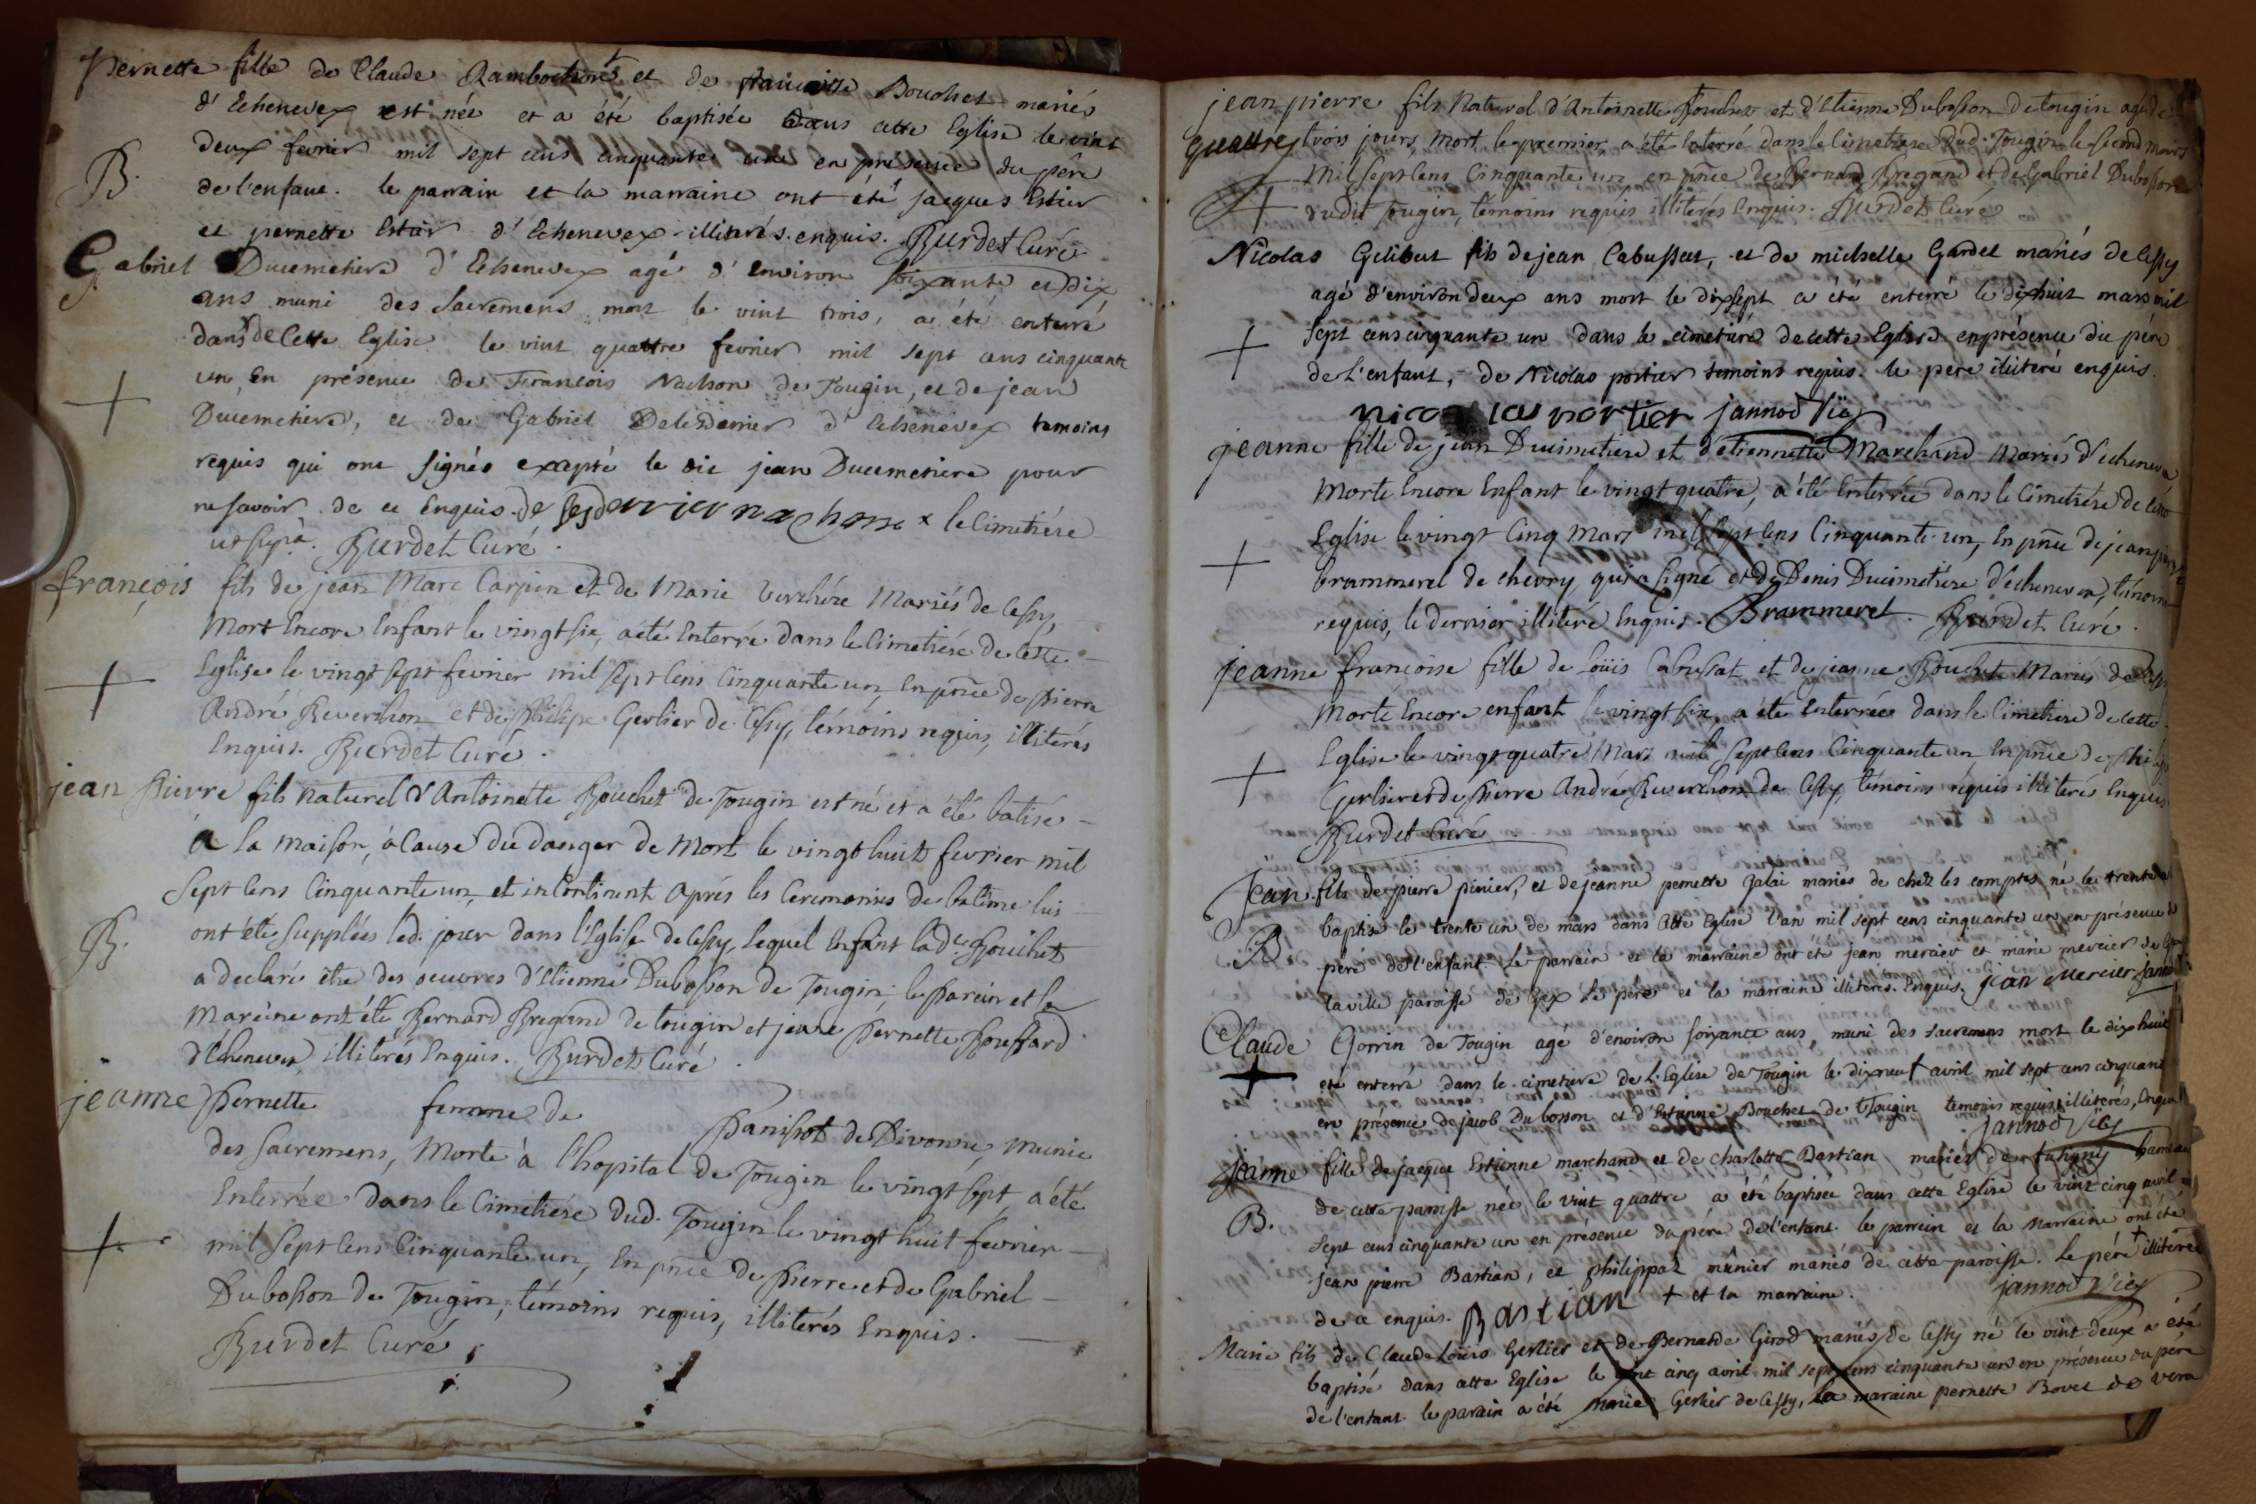 Pernette fille de Claude et de françoise Bouchet mariés
d'Echenevex est née et a été baptisée dans cette Eglise le vint
deux fevrier mil sept cens cinquante une en présence du pére
B.
de l'enfant. le parrain et la marraine ont été jacques Estier
et pernette Estier d'Echenevex illiterés enquis. Burdet Curé
Gabriel Ducemetiere d'Echenevex agé d'environ soixante et dix
ans muni des Sacremens mort le vint trois, a été enterré
dans x de Cette Eglise le vint quattre fevrier mil sept cens cinquante
un En présence de François Nachon de Tougin, et de jean
Ducemetiere, et de Gabriel Delesderrier d'Echenevex temoins
requis qui ont signés exapté le dit jean Ducemetiere pour
ne savoir de ce Enquis. nachon x le Cimetiére
ut supra. Burdet Curé.
françois fils de jean Marc Carpin et de Marie Verchére Mariés de Cessy,
Mort Encore Enfant le vingt six, a été Enterré dans le Cimetiére de Cette
Eglise le vingt sept fevrier mil sept Cens Cinquante un, En pnce de Pierre
André Reverchon et de Philipe Gerlier de Cessy, témoins requis, illiterés
Enquis. Burdet Curé.
jean Pierre fils Naturel d'Antoinette Bouchet de Tougin est né et a été batisé
a la Maison, à Cause du danger de Mort le vingt huit fevrier mil
Sept Cens Cinquante un, et incontinent Aprés les Ceremonies de batême lui
ont été supplées led. jour dans l'Eglise de Cessy, lequel Enfant lad.e Bouchet
B.
a declaré être des oeuvres d'Etienne Dubosson de Tougin; le Parein et la
Mareine ont été Bernard Bregand de tougin et jeane Pernette Bouffard
d'Echenevex, illiterés Enquis. Burdet Curé.
jeanne Pernette femme de Panissot de Divonne, Munie
des sacremens, Morte à l'hopital de Tougin le vingt sept, a été
Enterrée dans le Cimetiére dud. Tougin le vingt huit fevrier
mil sept Cens Cinquante un, En pnce de Pierre et de Gabriel
Dubosson de Tougin, témoins requis, illiterés Enquis.
Burdet Curé
jean pierre fils Naturel d'Antoinette Bouchet et d'Etienne Dubosson de tougin agé de
quattre trois jours, Mort le premier, a été Enterré dans le Cimetiere dud. Tougin le second mars
Mil Sept Cens Cinquante un en pnce de Bernard Bregand et de Gabriel Dubosson
dudit Tougin, témoins requis illiterés Enquis. Burdet Curé
Nicolas Gelibert fils de jean Cabussat, et de michelle Gardet mariés de Cessy
agé d'environ deux ans mort le dixsept a été enterré le dixhuit mars mil
sept cens cinquante un dans le cimetiére de cette Eglise en présence du pére
de L'enfant, de Nicolas portier temoins requis. le pére illiteré enquis.
nicolas portier jannod Vic
jeanne fille de jean Ducimetiere et d'étiennette Marchand Mariés d'echenevex
Morte Encore Enfant le vingt quatre, a été Enterrée dans le Cimetiére de cette
Eglise le vingt Cinq Mars mil sept Cens Cinquante un, En pnce de jean
brammerel de chevry, qui a signé et de Denis Ducimetiére d'echenevex, témoins
requis, le dernier illiteré Enquis. Brammerel. Burdet Curé.
jeanne françoise fille de Loüis Cabussat et de jeanne Bouchet Mariés de Cessy
Morte Encore enfant le vingt six, a été Enterrée dans le Cimetiere de cette
Eglise le vingt quatre Mars mil Sept Cens Cinquante un En pnce de
Gerlier et de Pierre André Reverchon de Cessy, témoins requis illiterés Enquis
Burdet Curé
Jean fils de pierre pinier, et de jeanne pernette Jalai mariés de chez les comptes né le trente
B
baptisé le trente un de mars dans cette Eglise l'an mil sept cens cinquante un en présence
pére de l'enfant. Le parrain et la marraine ont été jean mercier et marie mercier de
la ville paroisse de Gex le pére et la marraine illiterés. Enquis. jean Mercier
Claude Gorrin de Tougin agé d'environ soixante ans, muni des sacremens mort le dix huit
été enterré dans le cimetiére de l'Eglise de Tougin le dixneuf avril mil sept cens cinquante
en présence de jacob Dubosson et d'Estienne Bouchet de Tougin temoins requis illiterés, Enquis
jannod Vic
Jeanne fille de jaques Estienne marchand et de charlotte Bastian mariés de
de cette paroisse née le vint quattre a été baptisée dans cette Eglise le vint cinq avril
B.
sept cens cinquante un en présence du pére de l'enfant. le parrein et la Marraine ont été
jean pierre Bastian, et philippaz münier mariés de cette paroisse. Le pére + illiterés
de ce enquis. Bastian + et la marraine. jannod Vic
Marie fils de Claude Loüis Gerlier et de Bernarde Girod mariés de Cessy né le vint deux a été
baptisé dans cette Eglise le vint cinq avril mil sept cens cinquante un en présence du pére
de l'enfant. le parain a été Marie Gerlier de Cessy, la maraine pernette Bovet de